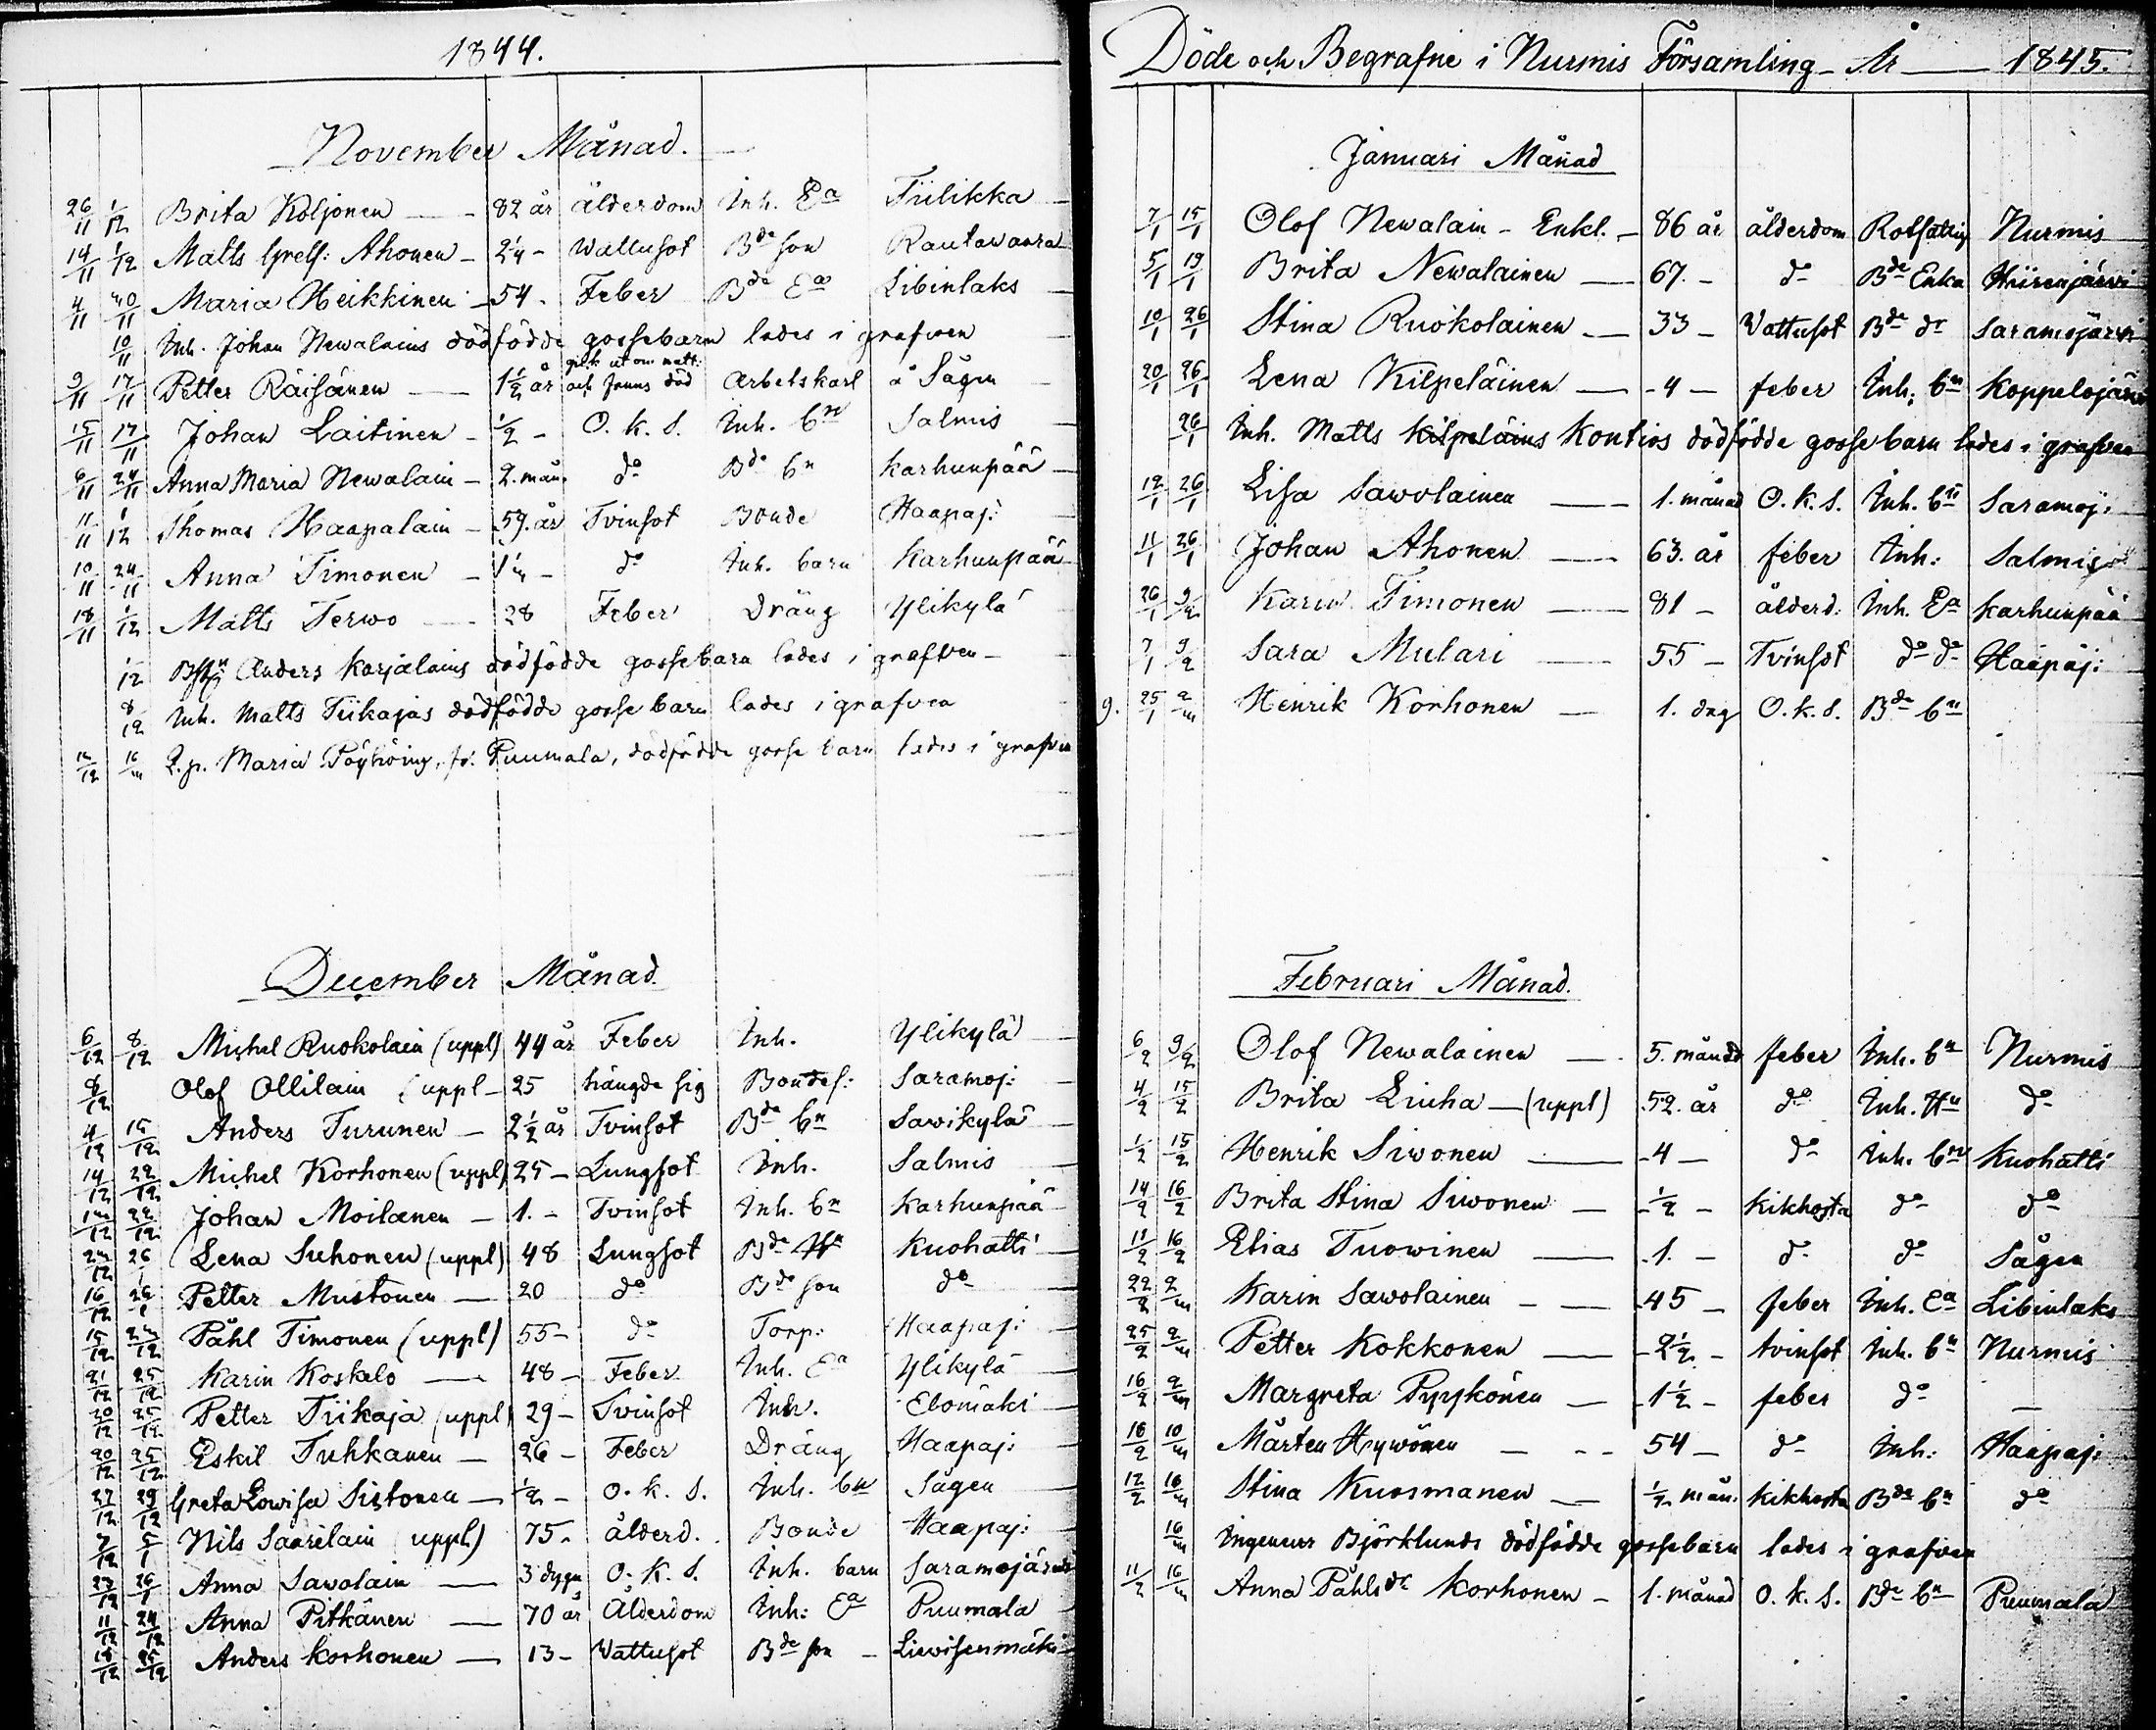 1844.
November Månad.
26/11 1/12 Brita Koljonen 82 år ålderdom Inh. Ea Tiilikka
14/11 1/12 Matts Grels: Ahonen 2¼ - Wattusot Bde son Rautawaara
4/11 10/11 Maria Heikkinen 54. Feber Bde Ea Libinlaks
10/11 Inh. Johan Newalains dödfödde gossebarn lades i grafven
9/11 17/11 Petter Räisänen 1½ år gick ut om natt: och fanns död Arbetskarl å Sågen
15/11 17/11 Johan Laitinen ½ - O. k. S. Inh. bn Salmis
6/11 24/11 Anna Maria Newalain 2. mån. do Bde bn Karhunpää
11/11 1/12 Thomas Haapalain 59. år Tvinsot Bonde Haapaj:
10/11 24/11 Anna Timonen 1¼ - do Inh. barn Karhunpää
18/11 1/12 Matts Terwo 28 Feber Dräng Ylikylä
1/12 Anders Karjalains dödfödde gossebarn lades i grafven
8/12 Inh. Matts Tiikajas dödfödde gosse barn lades i grafven
Q. p. Maria Pöyhöing, fr. Puumala, dödfödde gosse barn lades i grafven
December Månad.
6/12 8/12 Michel Ruokolain (uppl) 44 år Feber Inh. Ylikylä
8/12 Olof Ollilain (uppl 25 hängde sig Bondes: Saramoj:
4/12 15/12 Anders Turunen 2½ år Tvinsot Bde bn Sawikylä
14/12 22/12 Michel Korhonen (uppl) 25 - Lungsot Inh. Salmis
22/12 Johan Moilanen 1. - Tvinsot Inh. bn Karhunpää
26/1 Lena Suhonen (uppl) 48 Lungsot Bde Hu Kuohatti
16/12 26/1 Petter Mustonen 20 do Bde son do
15/12 Påhl Timonen (uppl) 55 - do Torp: Haapaj:
21/12 25/12 Karin Koskelo 48 - Feber Inh. Ea Ylikylä
20/12 25/12 Petter Tiikaja (uppl) 29 - Tvinsot Inh. Elomäki
20/12 25/12 Eskil Tuhkanen 26 - Feber Dräng Haapaj:
27/12 29/12 Greta Lowisa Sistonen ½ - O. k. S. Inh. bn Sågen
7/12 5/1 Nils Saarelain (uppl) 75. ålderd. Bonde Haapaj:
27/12 26/1 Anna Sawolain 3 dygn O. k. S. Inh. barn Saramojärwi
11/12 24/12 Anna Pitkänen 70 år Ålderdom Inh: Ea Puumala
18/12 25/12 Anders Korhonen 13 - Wattusot Bde son Liewisenmäki
Döde och Begrafne i Nurmis Församling År 1845.
Januari Månad
7/1 15/1 Olof Newalain - Enkl. 86 år ålderdom Rotfattig Nurmis
5/1 19/1 Brita Newalainen 67. - do Bde Enka Hiirenjärwi
10/1 26/1 Stina Ruokolainen 33 - Vattusot Bde dr Saramojärwi
20/1 26/1 Lena Kilpeläinen 4 - feber Inh: bn Koppelojärwi
26/1 Inh. Matts Kilpeläins Kontios dödfödde gosse barn lades i grafven
12/1 26/1 Lisa Sawolainen 1. månad O. k. S. Inh. bn Saramoj:
11/1 26/1 Johan Ahonen 63. år feber Inh: Salmis
26/1 9/2 Karin Timonen 81 - ålderd. Inh. Ea Karhunpää
7/1 9/2 Sara Mulari 55 - Tvinsot do do Haapaj:
9. 25/1 2/m Henrik Korhonen 1. dag O. k. S. Bde bn
Februari Månad.
6/2 9/2 Olof Newalainen 5. månad feber Inh. bn Nurmis
4/2 15/2 Brita Liuha (uppl) 52. år do Inh. Hu do
1/2 15/2 Henrik Siwonen 4 - do Inh. bn Kuohatti
14/2 16/2 Brita Stina Siwonen ½ - Kikhosta do do
11/2 16/2 Elias Tuowinen 1. - do do Sågen
22/2 2/m Karin Sawolainen 45 - feber Inh. Ea Libinlaks
25/2 2/m Petter Kokkonen 2½ - tvinsot Inh. bn Nurmis
16/2 2/m Margreta Pyykönen 1½ - feber do
18/2 10/m Mårten Hywönen 54 - do Inh: Haapaj:
12/2 16/m Stina Kuosmanen ½ mån. Kikhosta Bde bn do
16/m Ingenieur Björklunds dödfödde gossebarn lades i grafven
11/2 16/m Anna Påhlsdr Korhonen 1. månad O. k. S. Bde bn Puumala